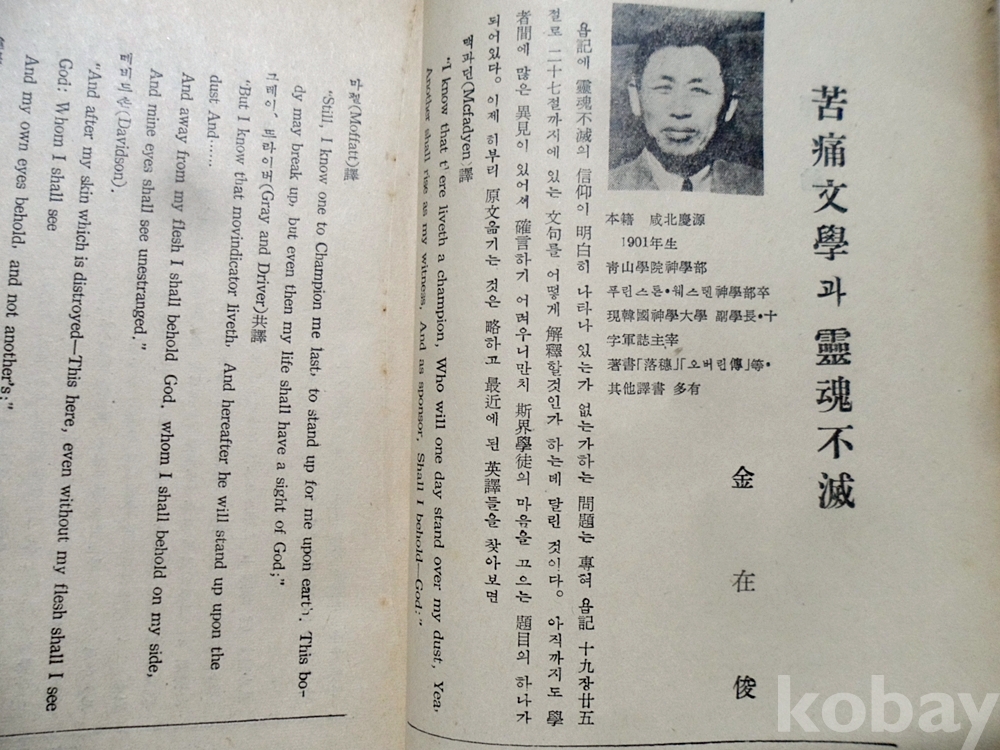 苦痛文學과 靈魂不滅
金在俊
本籍 咸北慶源
1901年生
靑山學院神學部
푸린스톤•웨스텐神學部卒
現韓國神學大學 副學長•十
字軍誌主宰
著書「落穗」「오버린傳」等•
其他譯書 多有
욥記에 靈魂不滅의 信仰이 明白히 나타나 있는가 없는가하는 問題는 專혀 욥記 十九장廿五
절로 二十七절까지에 있는 文句를 어떻게 解釋할것인가 하는데 달린 것이다。 아직까지도 學
者間에 많은 異見이 있어서 確言하기 어려우니만치 斯界學徒의 마음을 끄으는 題目의 하나가
되어있다。 이제 히부리 原文옮기는 것은 略하고 最近에 된 英譯들을 찾아보면
맥파딘(Mcfadyen)譯
"I know that t'ere liveth a champion, Who will one day stand over my dust, Yea,
Another shall rise as my witness, And as sponsor, Shall I behold—God;"
(Moffatt)譯
"Still, I know one to Champion me last, to stand up for me upon earth. This bo-
dy may break up, but even then my life shall have a sight of God;"
(Gray and Driver)共譯
"But I know that movindicator liveth. And hereafter he will stand up upon the
dust And......
And away from my flesh I shall behold God. whom I shall behold on my side,
And mine eyes shall see unestranged."
(Davidson).
"And after my skin which is distroyed—This here, even without my flesh shall I see
God: Whom I shall see
And my own eyes behold, and not another's;"
kobay